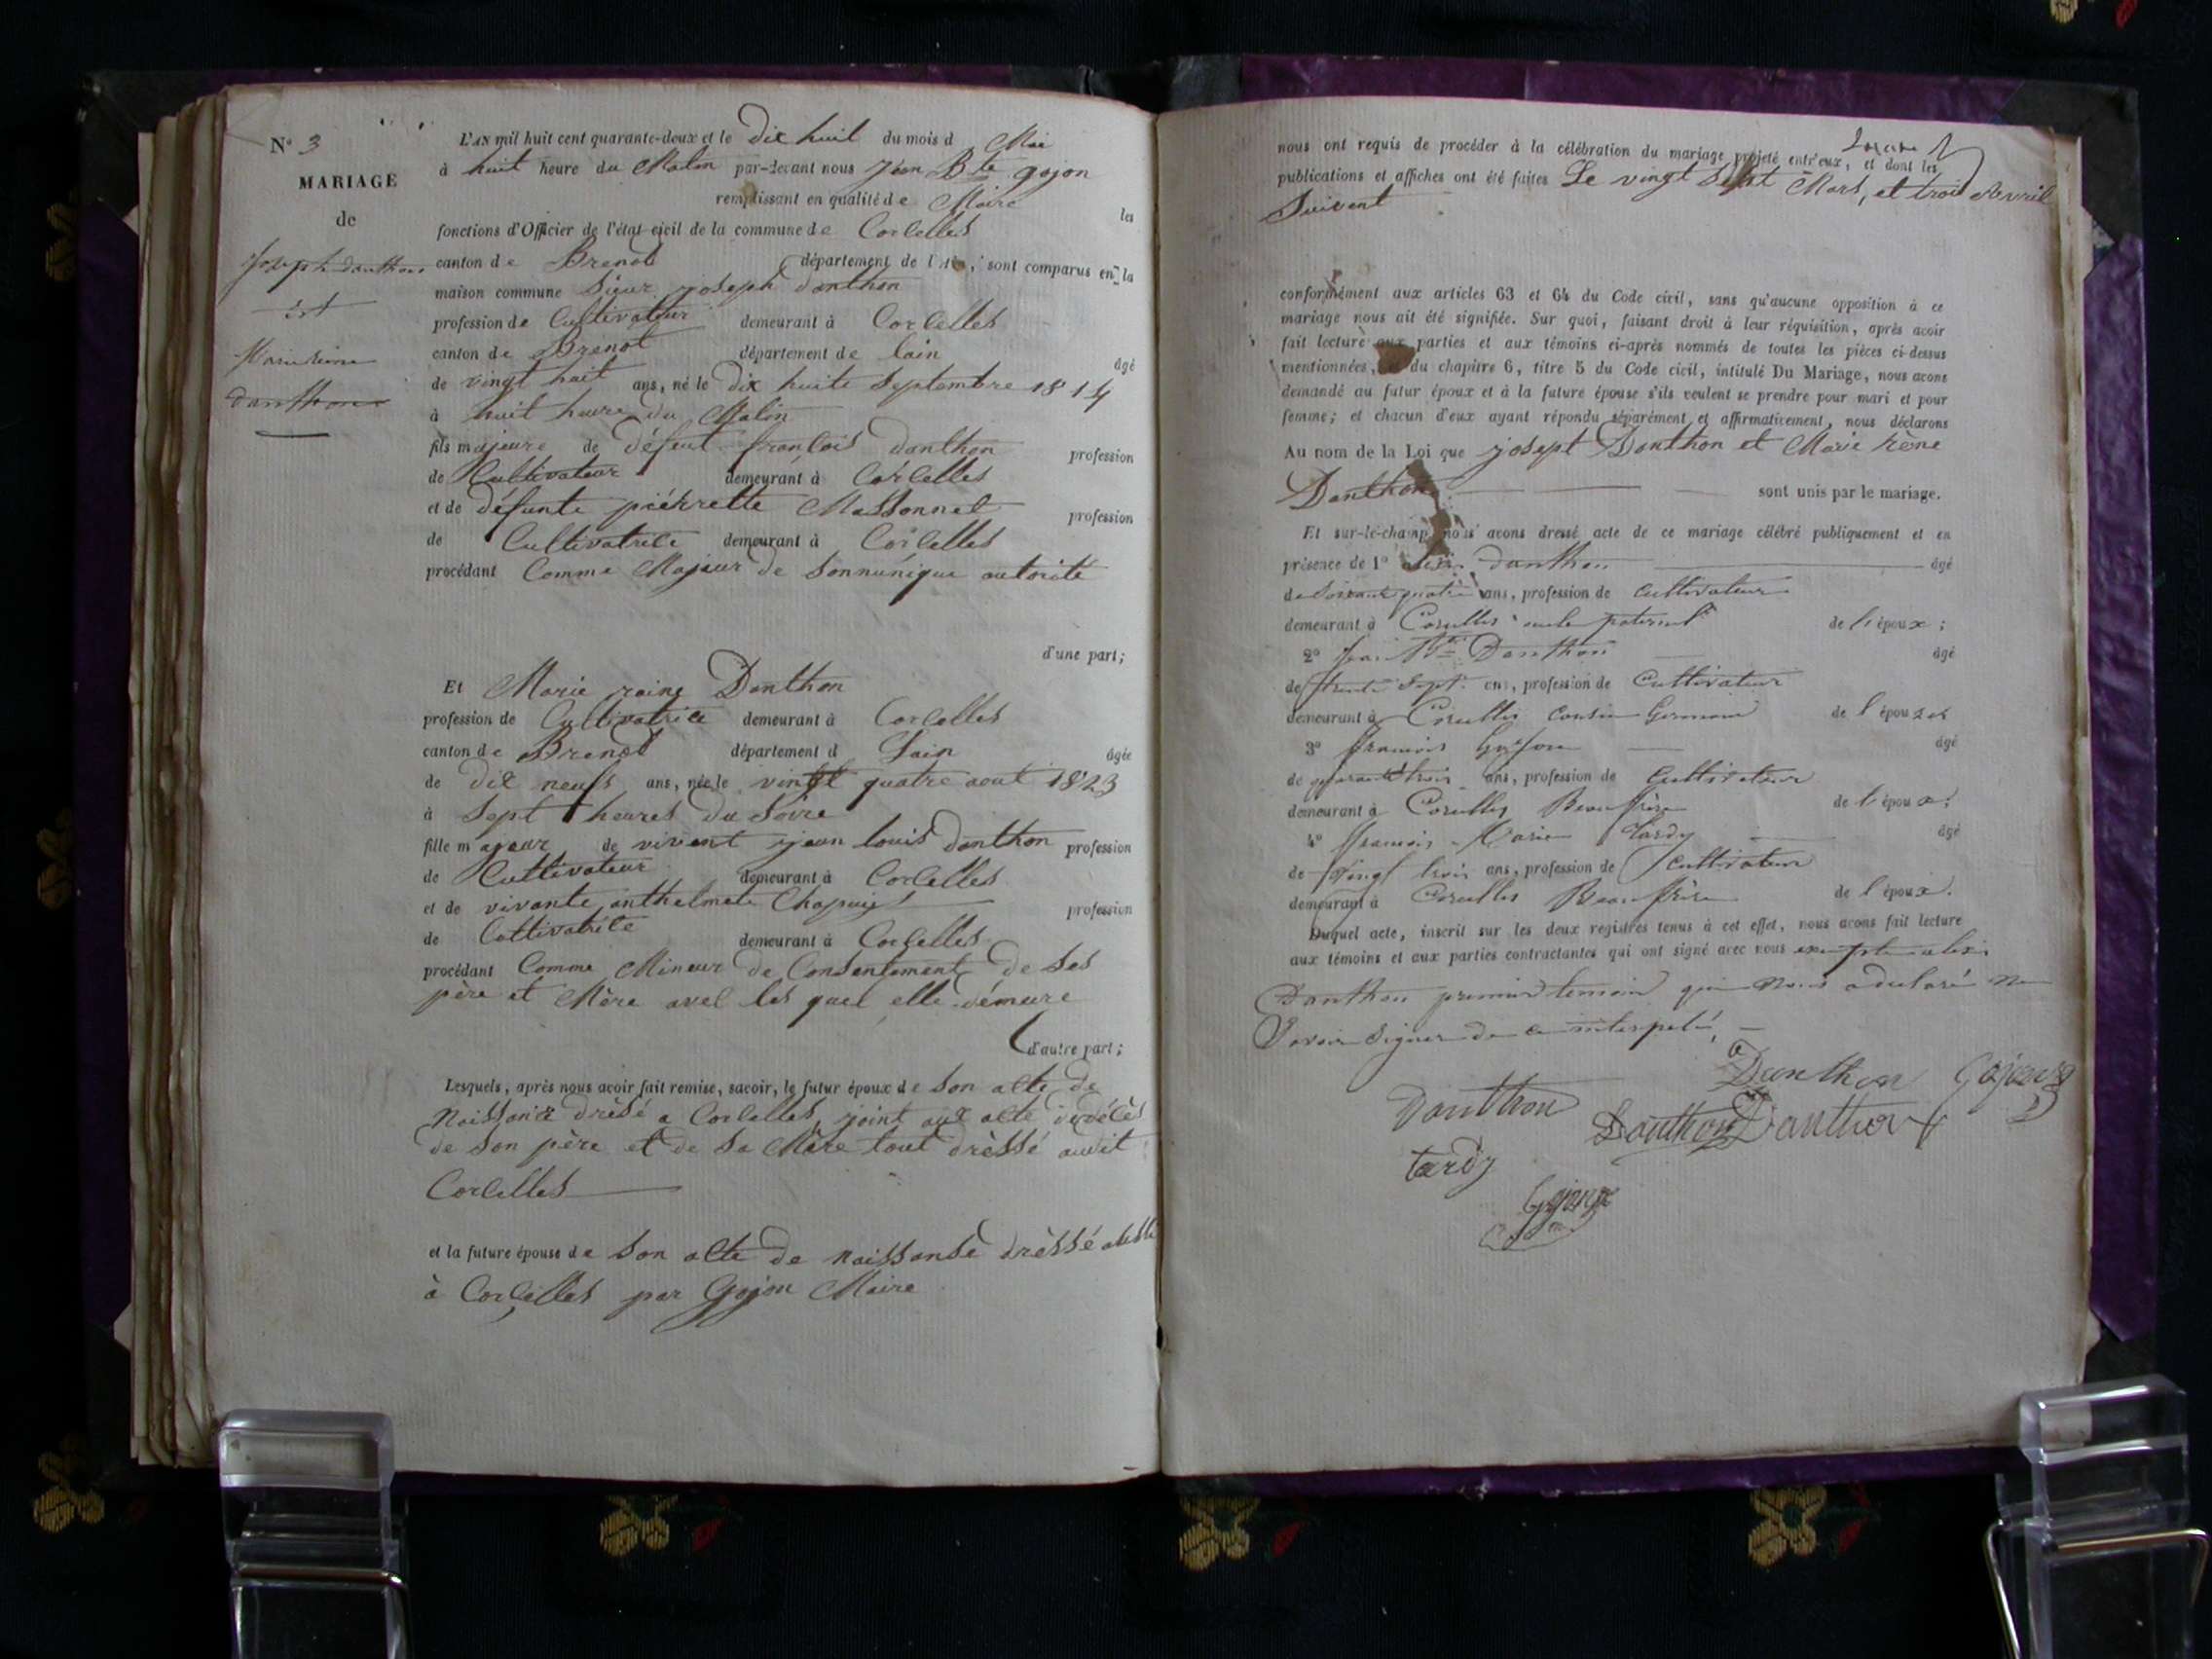 N° 3
MARIAGE
de
Joseph danthon
et
Marie reine
danthon
L'AN mil huit cent quarante-deux et le dix huit du mois d Mai
à huit heure du Matin par-devant nous jean Bte gojon
remplissant en qualité de Maire les
fonctions d'Officier de l'état civil de la commune de Corcelles
canton de Brenod département de l'Ain, sont comparus en la
maison commune Sieur joseph danthon
profession de Cultivateur demeurant à Corcelles
canton de Brenot département de lain âgé
de vingt huit ans, né le dix huite Septembre 1814
à huit heure du Matin
fils majeure de défeut françois danthon profession
de Cultivateur demeurant à Corcelles
et de défunte piérrette Massonnet profession
de Cultivatrice demeurant à Corcelles
procédant Comme Majeur de Sonnunique autorité
d'une part;
Et Marie raine Danthon
profession de Cultivatrice demeurant à Corcelles
canton de Brenod département d Lain âgée
de dix neufs ans, née le vingt quatre aout 1823
à Sept heures du Soire
fille majeur de vivent jean louis danthon profession
de Cultivateur demeurant à Corcelles
et de vivante anthelmete Chapuis profession
de Cottivatrice demeurant à Corcelles
procédant Comme Mineur de Consentement de Ses
père et Mère avec les quel elle démeure
d'autre part;
Lesquels, après nous avoir fait remise, savoir, le futur époux de Son acte de
Naissance drèsé a Corcelles, joint aux acte dudécès
de Son père et de Sa Mère tout drèssé audit
Corcelles
et la future épouse de Son acte de Naissanse drèssé
à Corcelles par Gojon Maire
nous ont requis de procéder à la célébration du mariage projeté entr'eux, et dont les
publications et affiches ont été faites Le vingt Sept Mars, et trois Avril
Suivent
conformément aux articles 63 et 64 du Code civil, sans qu'aucune opposition à ce
mariage nous ait été signifiée. Sur quoi, faisant droit à leur réquisition, après avoir
fait lecture aux parties et aux témoins ci-après nommés de toutes les pièces ci-dessus
mentionnées, du chapitre 6, titre 5 du Code civil, intitulé Du Mariage, nous avons
demandé au futur époux et à la future épouse s'ils veulent se prendre pour mari et pour
femme; et chacun d'eux ayant répondu séparément et affirmativement, nous déclarons
Au nom de la Loi que josept Danthon et Marie rène
Danthon sont unis par le mariage.
Et sur-le-champ nous avons dressé acte de ce mariage célébré publiquement et en
présence de 1° danthon âgé
de Soixante quatre ans, profession de Cultivateur
demeurant à Corcelles oncle paternel de l'époux;
2° Jean Bte Danthon âgé
de trente Sept ans, profession de Cultivateur
demeurant à Corcelles Cousin Germain de l'époux
3° françois Gojon âgé
de quarante trois ans, profession de Cultivateur
demeurant à Corcelles Beau frère de l'époux;
4° françois Marie Tardy âgé
de Vingt trois ans, profession de Cultivateur
demeurant à Corcelles Beau frère de l'époux.
Duquel acte, inscrit sur les deux registres tenus à cet effet, nous avons fait lecture
aux témoins et aux parties contractantes qui ont signé avec nous excepte alexis
Danthon premier temoin qui Nous a declaré Ne
Savoir Signer de ce interpelé,
Danthon Gojon
Danthon Danthon Danthon
tardy
Gojon